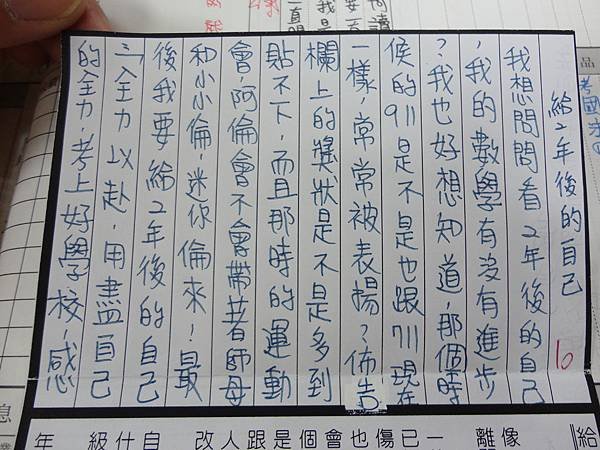 給2年後的自己
我想問問看2年後的自己
，我的數學有沒有進步
？我也好想知道，那個時
候的911是不是也跟711現在
一樣，常常被表揚？佈告
欄上的獎狀是不是多到
貼不下，而且那時的運動
會，阿倫會不會帶著師母
和小小倫，迷你倫來！最
後我要給2年後的自己
全力以赴，用盡自己
的全力，考上好學校，感
10
給
像
離
一已傷也會個是跟人改
自什級年